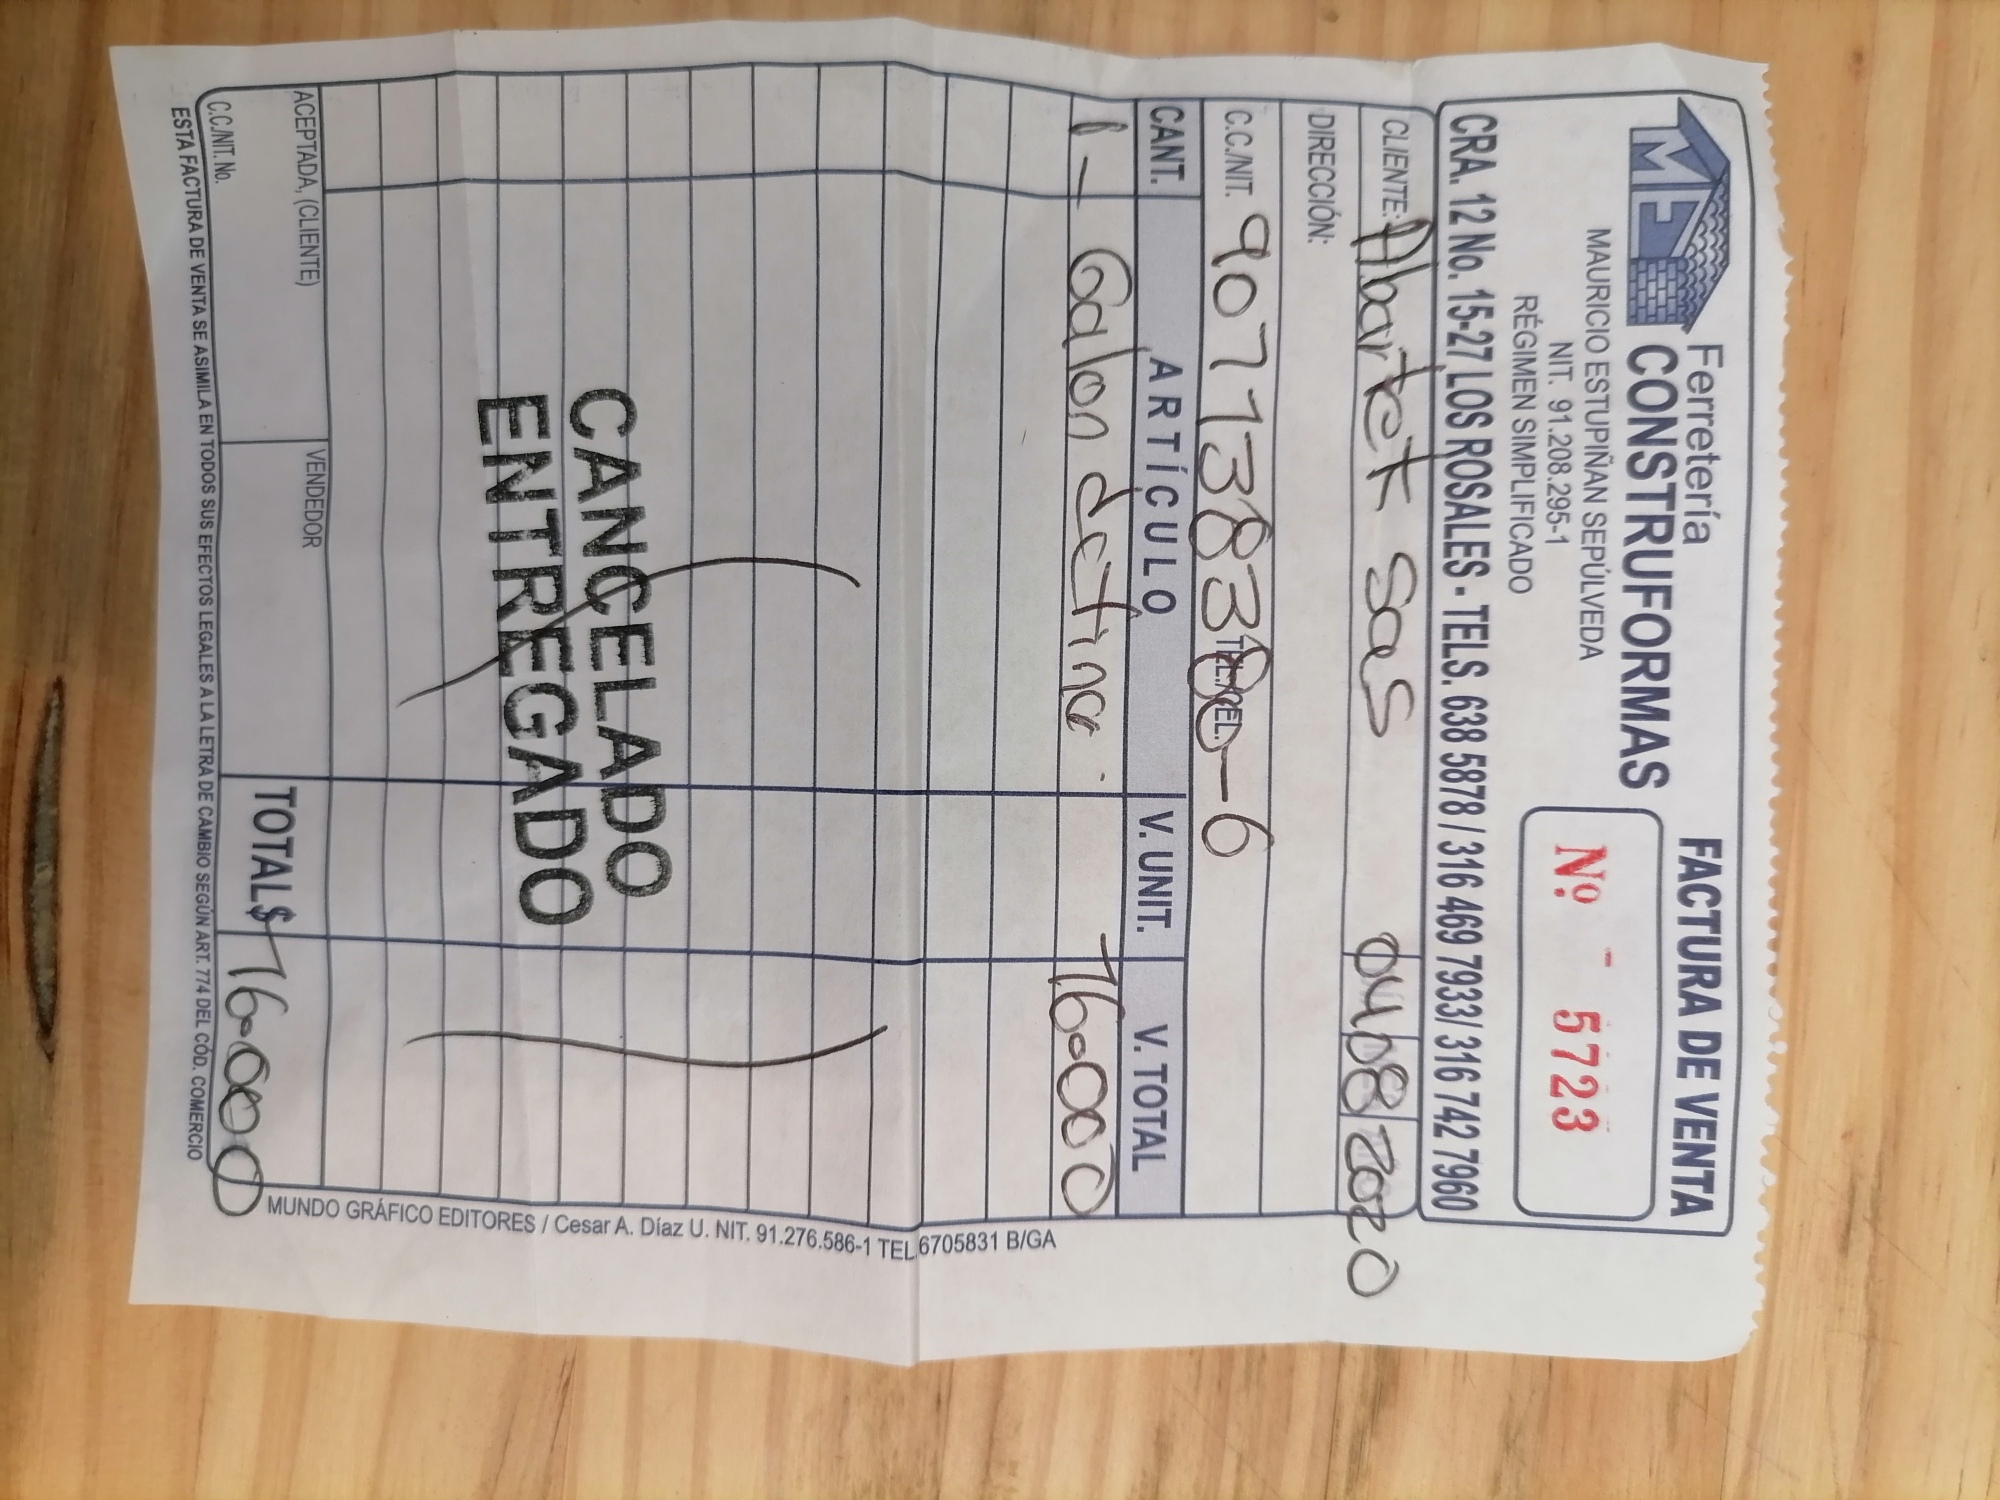 ME
Ferretería
CONSTRUFORMAS
MAURICIO ESTUPIÑAN SEPÚLVEDA
NIT. 91.208.295-1
RÉGIMEN SIMPLIFICADO
FACTURA DE VENTA
Nº 5723
CRA. 12 No. 15-27 LOS ROSALES - TELS. 638 5878 / 316 469 7933/ 316 742 7960
CLIENTE: Abartek sas 04 08 2020
DIRECCIÓN:
C.C./NIT. 907138380-6 TEL./CEL.
CANT. ARTÍCULO V. UNIT. V. TOTAL
1 - Galon de 16.000
CANCELADO
ENTREGADO
ACEPTADA, (CLIENTE) VENDEDOR
C.C./NIT. No.
TOTAL $ 16.000
ESTA FACTURA DE VENTA SE ASIMILA EN TODOS SUS EFECTOS LEGALES A LA LETRA DE CAMBIO SEGÚN ART. 774 DEL CÓD. COMERCIO
MUNDO GRÁFICO EDITORES / Cesar A. Díaz U. NIT. 91.276.586-1 TEL 6705831 B/GA